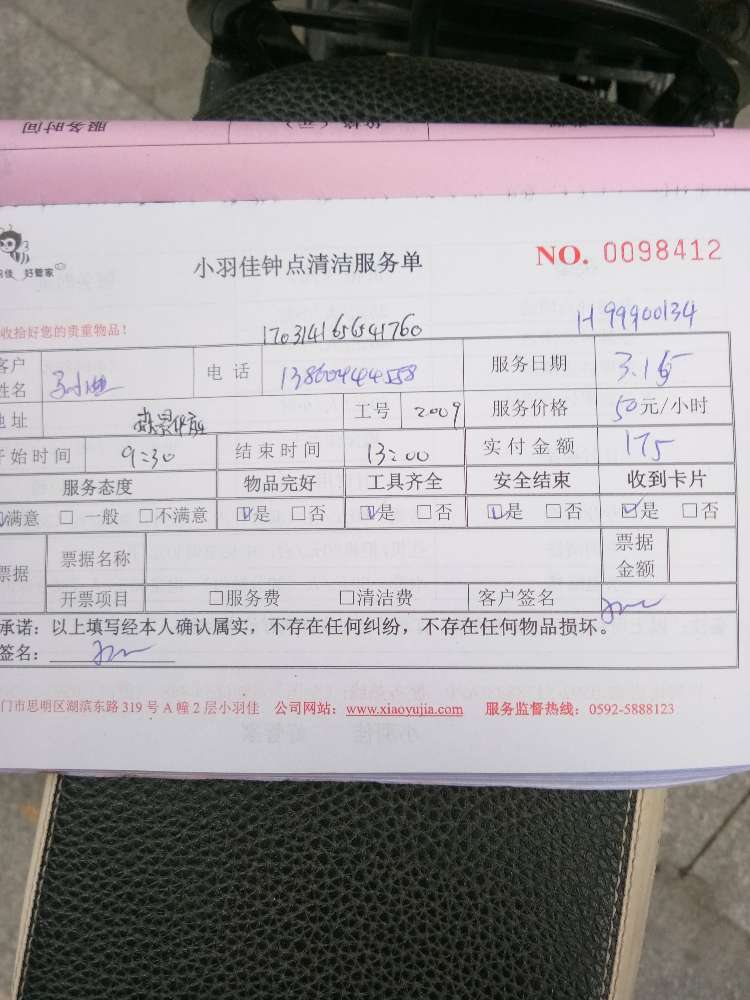 服务时间
小羽佳钟点清洁服务单 NO. 0098412
羽佳 好管家
收拾好您的贵重物品!
17031416541760 H 99900134
客户姓名 电话 服务日期 3.15
地址 工号 2009 服务价格 50元/小时
开始时间 9:30 结束时间 13:00 实付金额 175
服务态度 物品完好 工具齐全 安全结束 收到卡片
☑满意 □ 一般 □不满意 ☑是 □否 ☑是 □否 ☑是 □否 ☑是 □否
票据 票据名称 票据金额
开票项目 □服务费 □清洁费 客户签名
承诺：以上填写经本人确认属实，不存在任何纠纷，不存在任何物品损坏。
签名：
门市思明区湖滨东路 319 号 A 幢 2 层小羽佳 公司网站：www.xiaoyujia.com 服务监督热线：0592-5888123